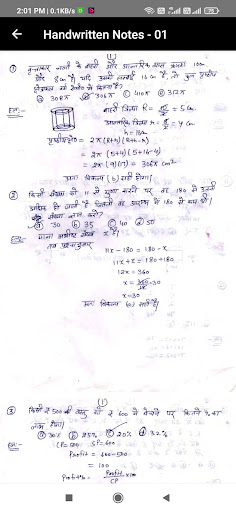 2:01 PM | 0.1KB/s
Handwritten Notes - 01
(1)
① वृत्ताकार नली के बाहरी और आन्तरिक व्यास क्रमशः 10cm
और 8cm है। यदि उसकी लम्बाई 16 cm है, तो कुल पृष्ठीय
क्षेत्रफल वर्ग सेमी० में कितना है?
ⓐ 308π ⓑ 306π ⓒ 410π ⓓ 312π
हल:- बाहरी त्रिज्या R = 10/2 = 5 cm
आन्तरिक त्रिज्या r = 8/2 = 4 cm
h = 16cm
पृष्ठीय क्षेत्र० = 2π(R+r)(R+h-r)
= 2π (5+4)(5+16-4)
= 2π (9)(17) = 306π cm²
अतः विकल्प (b) सही होगा।
② किसी संख्या को 11 से गुणा करने पर वह 180 से उतनी
अधिक हो जाती है जितनी वह प्रारम्भ में 180 से कम थी।
संख्या ज्ञात करो?
ⓐ 30 ⓑ 35 ⓒ 40 ⓓ 50
हल:- माना अभीष्ट संख्या x है।
तब प्रश्नानुसार
11x - 180 = 180 - x
11x + x = 180 + 180
12x = 360
x = 360/12 = 30
x = 30
अतः विकल्प (a) सही है।
(1)
③ किसी ₹ 500 की वस्तु को ₹ 600 में बेचने पर कितने % का
लाभ होगा।
ⓐ 30% ⓑ 25% ⓒ 20% ⓓ 32%
हल:- CP = 500 SP = 600
Profit = 600 - 500
= 100
Profit% = Profit/CP × 100